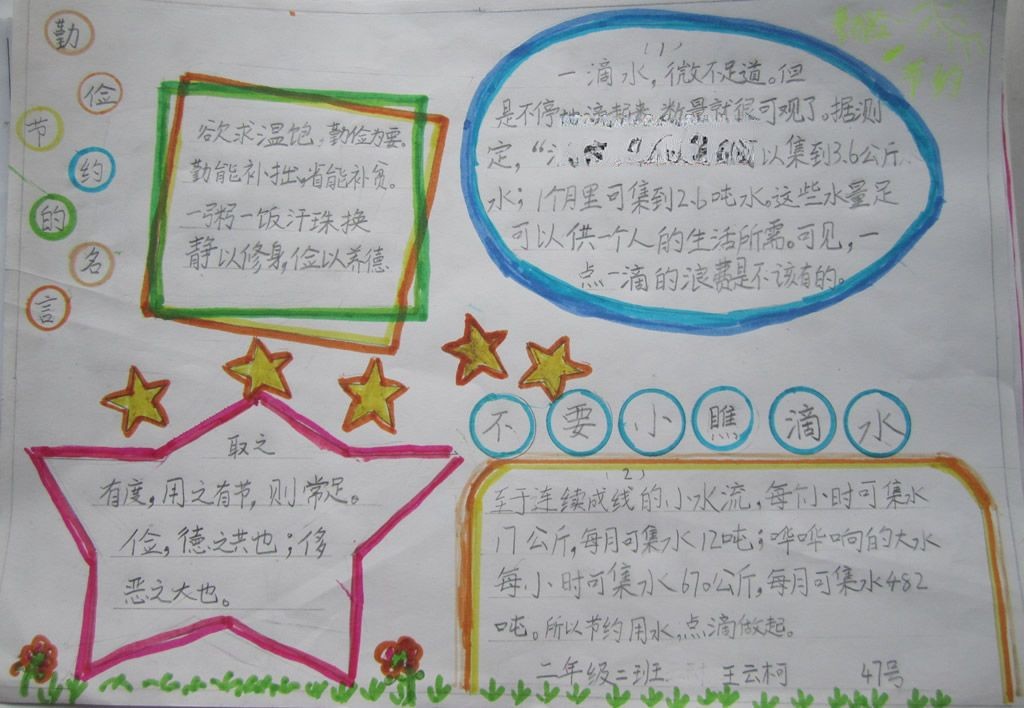 勤俭节约的名言
欲求温饱,勤俭为要。
勤能补拙,省能补贫。
一粥一饭汗珠换
静以修身,俭以养德
(1)
一滴水,微不足道。但
是不停地滴起来,数量就很可观了。据测
定,“滴 可以集到3.6公斤
水;1个月里可集到2.6吨水。这些水量足
可以供一个人的生活所需。可见,一
点一滴的浪费是不该有的。
勤俭
节约
取之
有度,用之有节,则常足。
俭,德之共也;侈
恶之大也。
不要小瞧滴水
(2)
至于连续成线的小水流,每个小时可集水
17公斤,每月可集水12吨;哗哗响的大水
每小时可集水670公斤,每月可集水482
吨。所以节约用水,点滴做起。
二年级二班 王云柯 47号